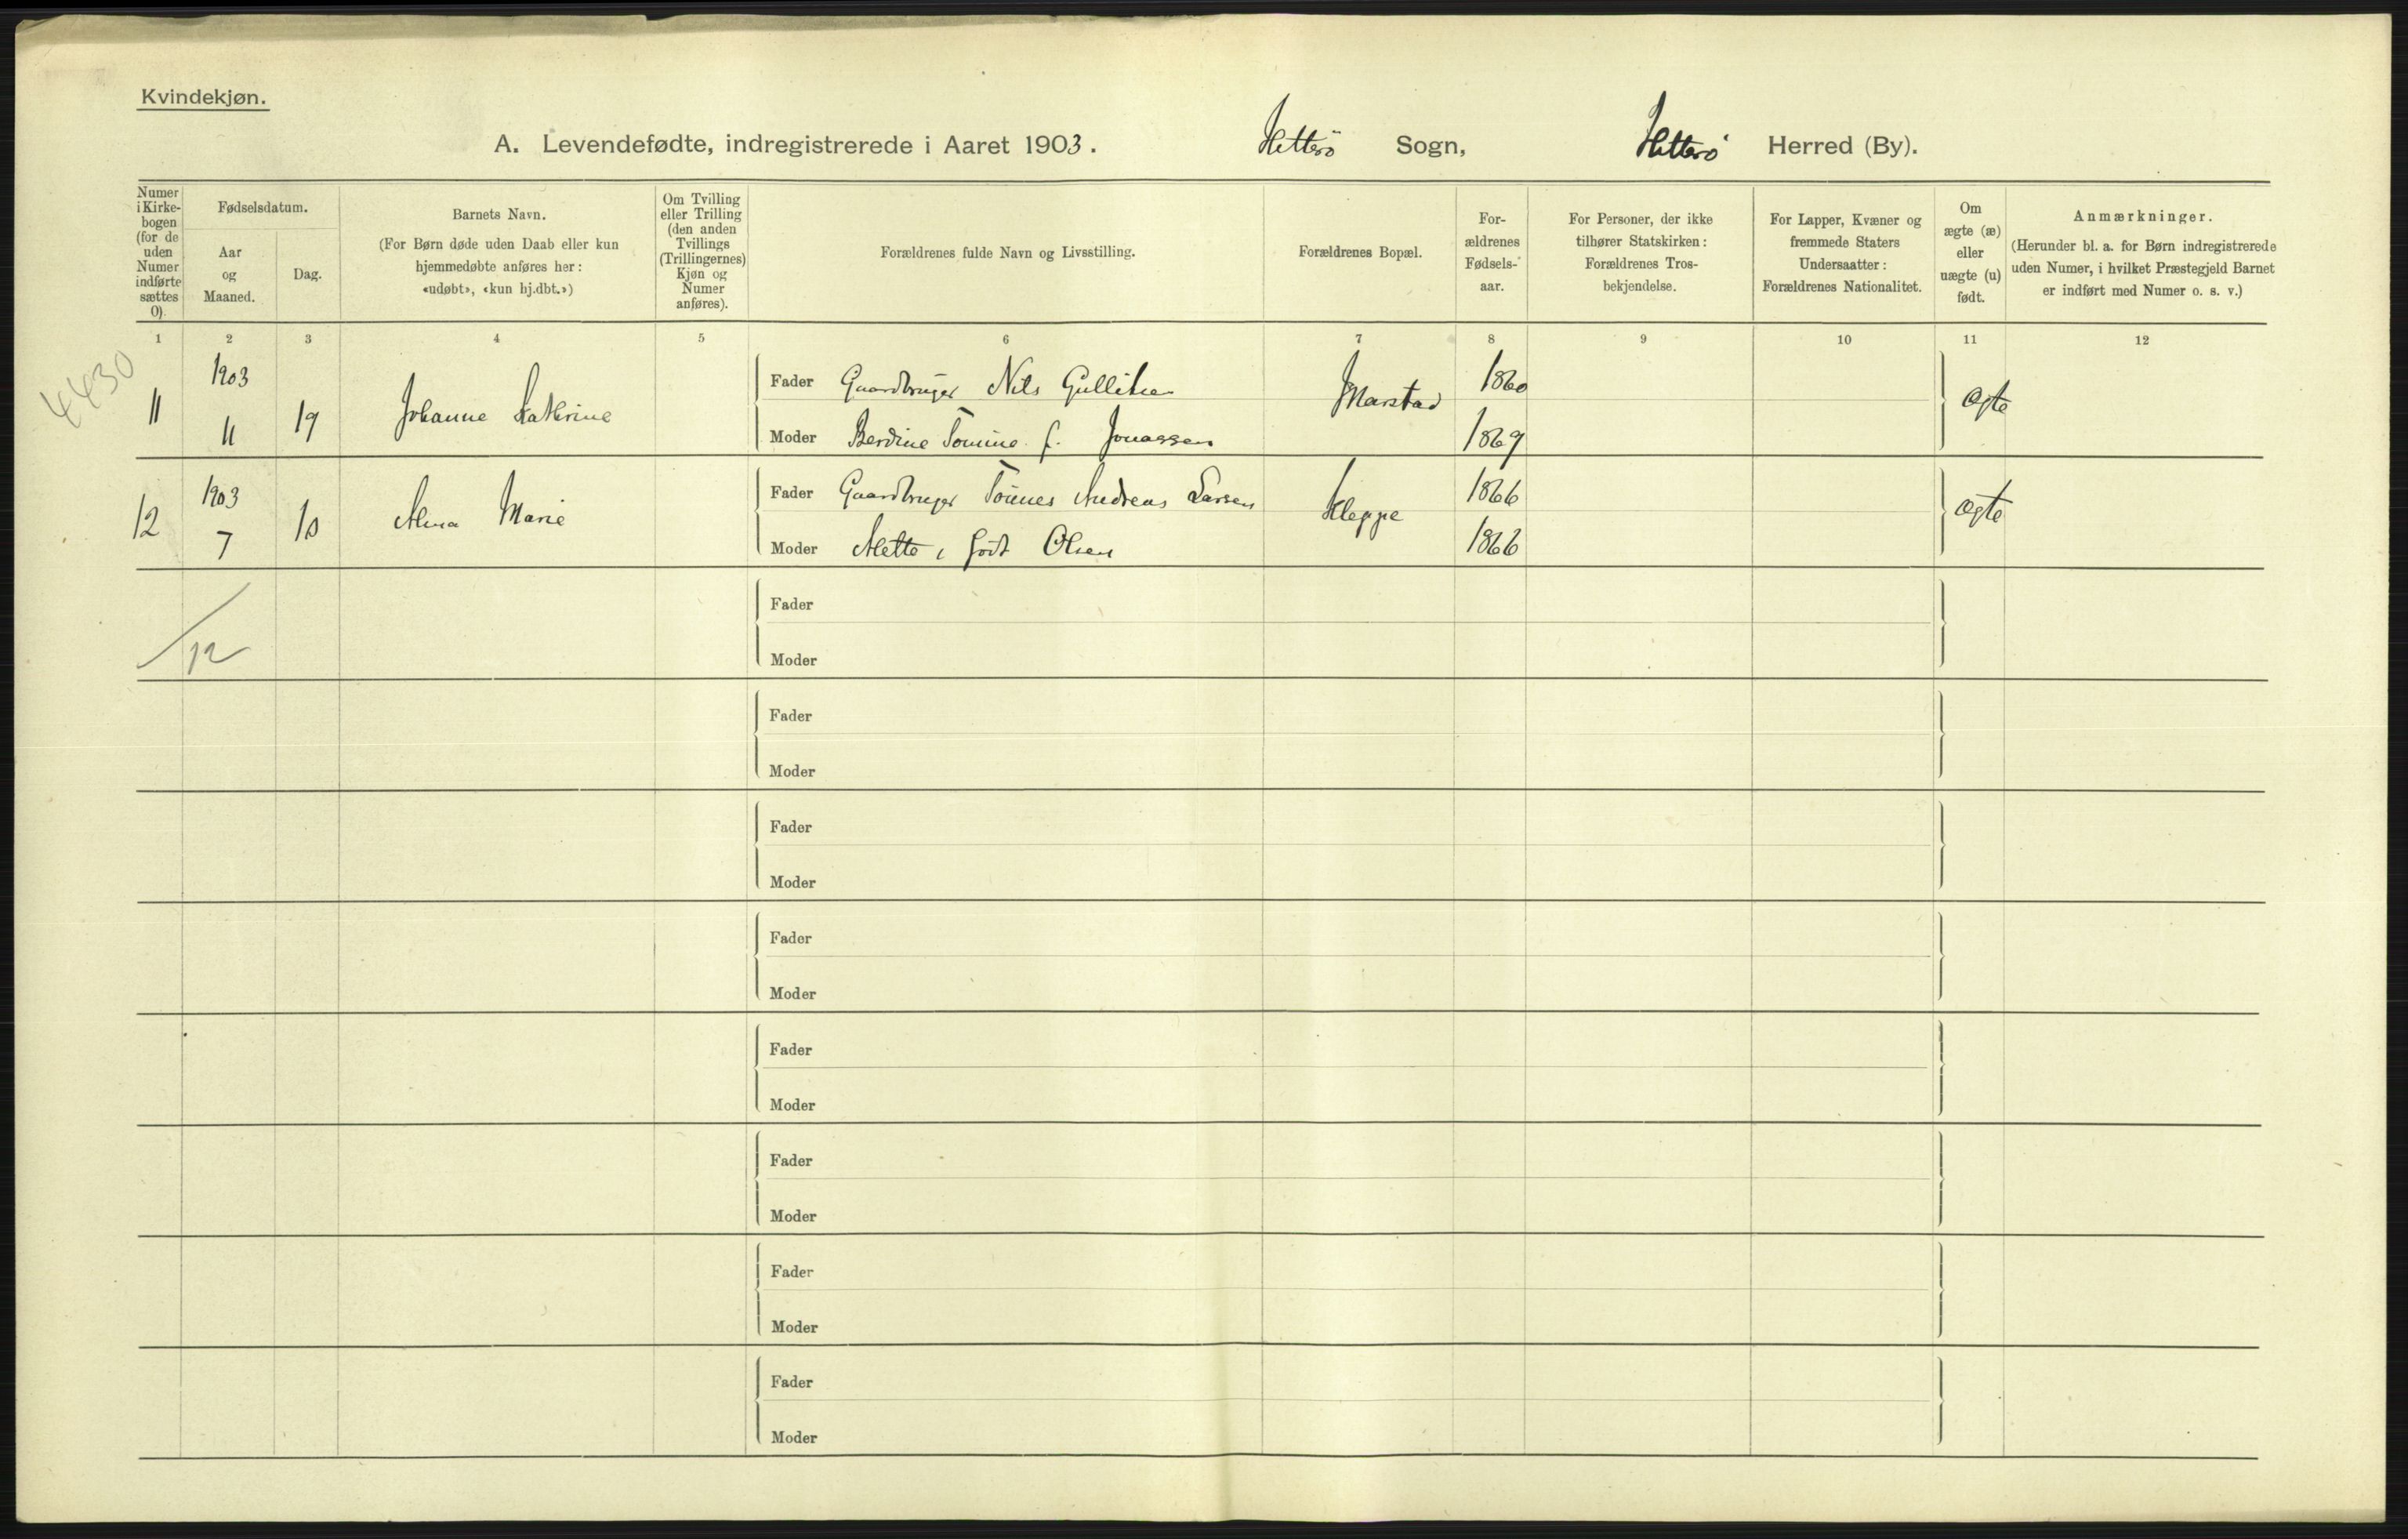 Kvindekjøn.
A. Levendefødte, indregistrerede i Aaret 1903. Hitterö Sogn, Hitterö Herred (By).
Numer i Kirkebogen (for de uden Numer indførte sættes 0).
Fødselsdatum.
Aar og Maaned.
Dag.
Barnets Navn.
(For Børn døde uden Daab eller kun hjemmedøbte anføres her: «udøbt», «kun hj.dbt.»)
Om Tvilling eller Trilling (den anden Tvillings (Trillingernes) Kjøn og Numer anføres).
Forældrenes fulde Navn og Livsstilling.
Forældrenes Bopæl.
For-
ældrenes
Fødsels-
aar.
For Personer, der ikke
tilhører Statskirken:
Forældrenes Tros-
bekjendelse.
For Lapper, Kvæner og
fremmede Staters
Undersaatter:
Forældrenes Nationalitet.
Om
ægte (æ)
eller
uægte (u)
født.
Anmærkninger.
(Herunder bl. a. for Børn indregistrerede
uden Numer, i hvilket Præstegjeld Barnet
er indført med Numer o. s. v.)
1 2 3 4 5 6 7 8 9 10 11 12
4430
11 1903 11 19 Johanne Kathrine
Fader Gaardbruger Nils Gulliksen Marstad 1860 ægte
Moder Berdine Tomine f. Jonassen 1869
12 1903 7 10 Alma Marie
Fader Gaardbruger Tönnes Andreas Larsen Kleppe 1866 ægte
Moder Mette, född Olsen 1866
12
Fader
Moder
Fader
Moder
Fader
Moder
Fader
Moder
Fader
Moder
Fader
Moder
Fader
Moder
Fader
Moder